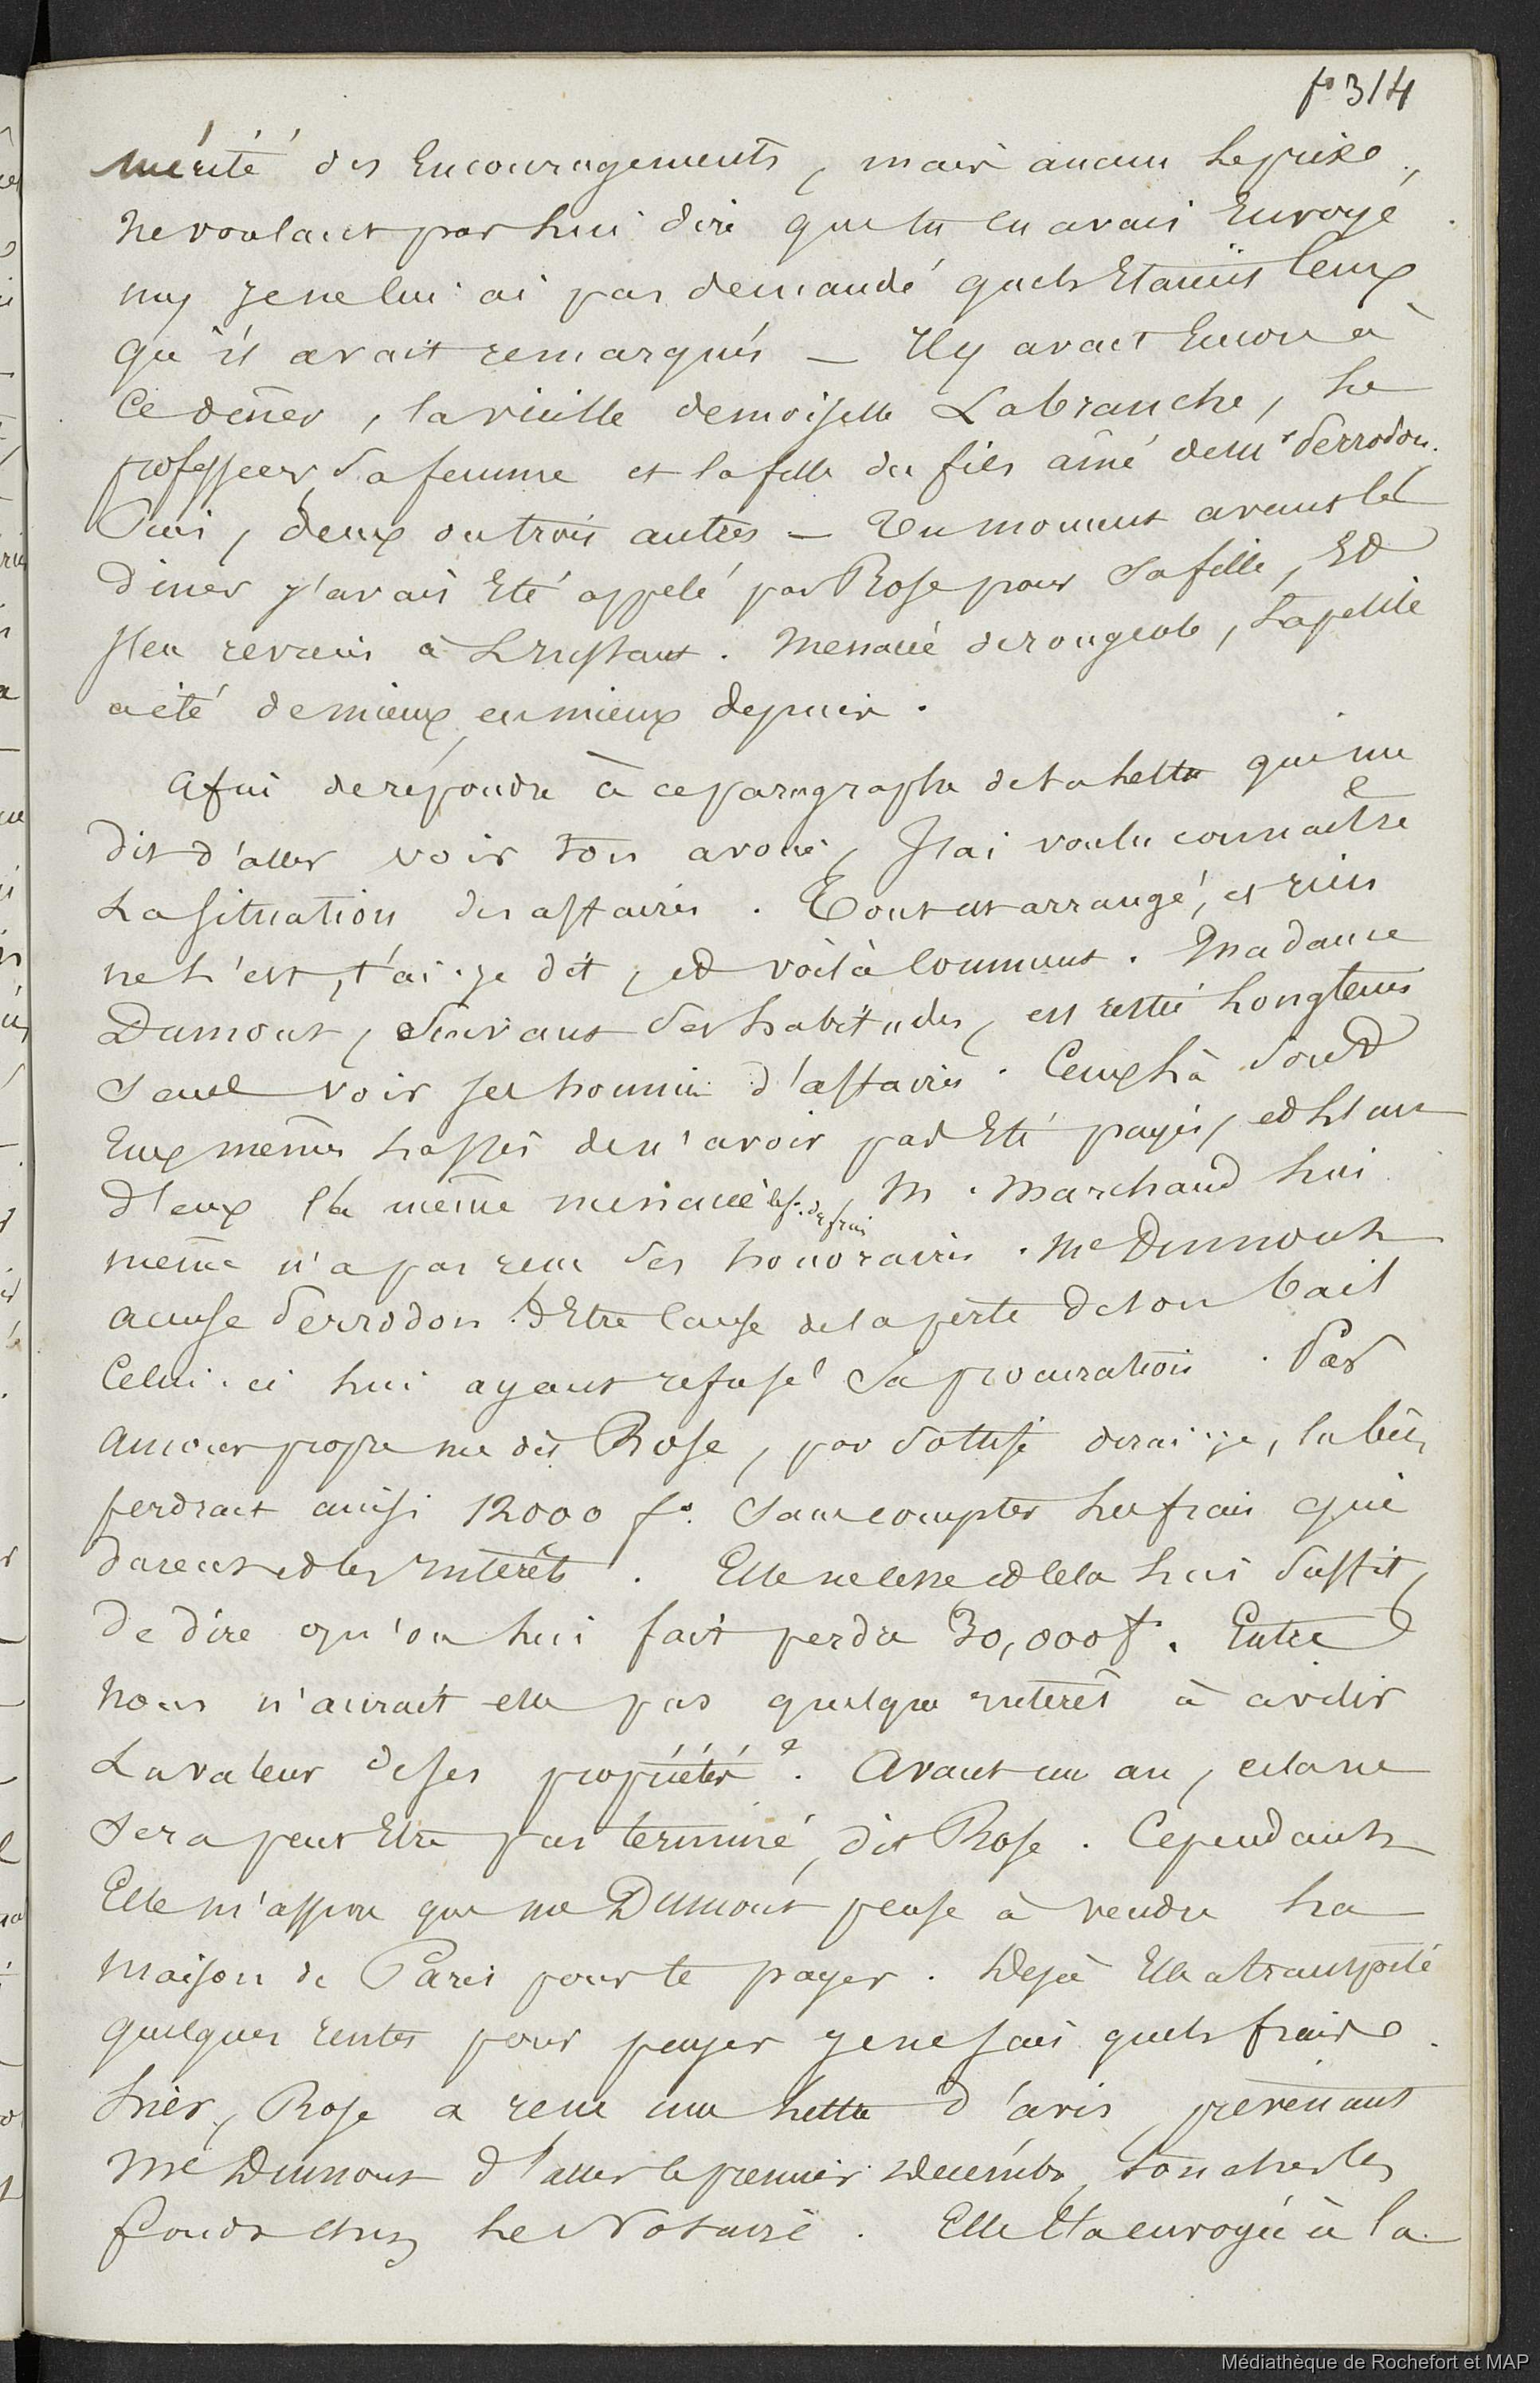 fo 314
mérité des Encouragements, mais aucun le prix.
ne voulant pas lui dire que tu en avais Envoyé
un, je ne lui ai pas demandé quels Etaient Ceux
qu'il avait remarqués — Il y avait Encore à
Ce dîner, la vieille demoiselle Labranche, le
professeur, sa femme et la fille du fils aîné de Mr Serrodon.
Puis, deux ou trois autres — Un moment avant le
diner j'avais Eté appelé par Rose pour sa fille, Et
J'en revins à L'instant. Menacé de rougeole, la petite
a été de mieux en mieux depuis.
Afin de répondre à ce paragraphe de ta lettre qui me
dit d'aller voir ton avoué, J'ai voulu connaître
La situation des affaires. Tout est arrangé, et rien
ne L'est, t'ai-je dit, et voilà Comment. Madame
Dumont, suivant ses habitudes, est restée Longtems
sans voir ses hommes d'affaires. Ceux là sont
Eux mêmes lassés de n'avoir pas Eté payés, et L'un
d'eux l'a même menacée de frais, M. Marchand lui
même n'a pas reçu ses honoraires. Me Dumont
accuse Serrodon d'Etre Cause de la perte de son bail
Celui-ci lui ayant refusé sa procuration. Par
amour propre me dit Rose, par sottise dirai-je, la
perdrait ainsi 12000 fs. sans compter les frais qui
et les Intérêts. Elle ne Cesse et Cela lui suffit,
De dire qu'on lui fait perdre 30,000 f. Entre
nous n'aurait elle pas quelque intérêt à avilir
La valeur de ses propriétés ? Avant un an, cela ne
sera peut Etre pas terminé, dit Rose. Cependant
Elle m'assure que me Dumont pense à vendre La
maison de Paris pour te payer. Déjà Elle a transporté
quelques rentes pour payer je ne sais quels frais.
hier, Rose a reçu une lettre d'avis, prévenant
Me Dumont d'aller le premier Décembre, toucher les
fonds chez Le Notaire. Elle l'a envoyée à la